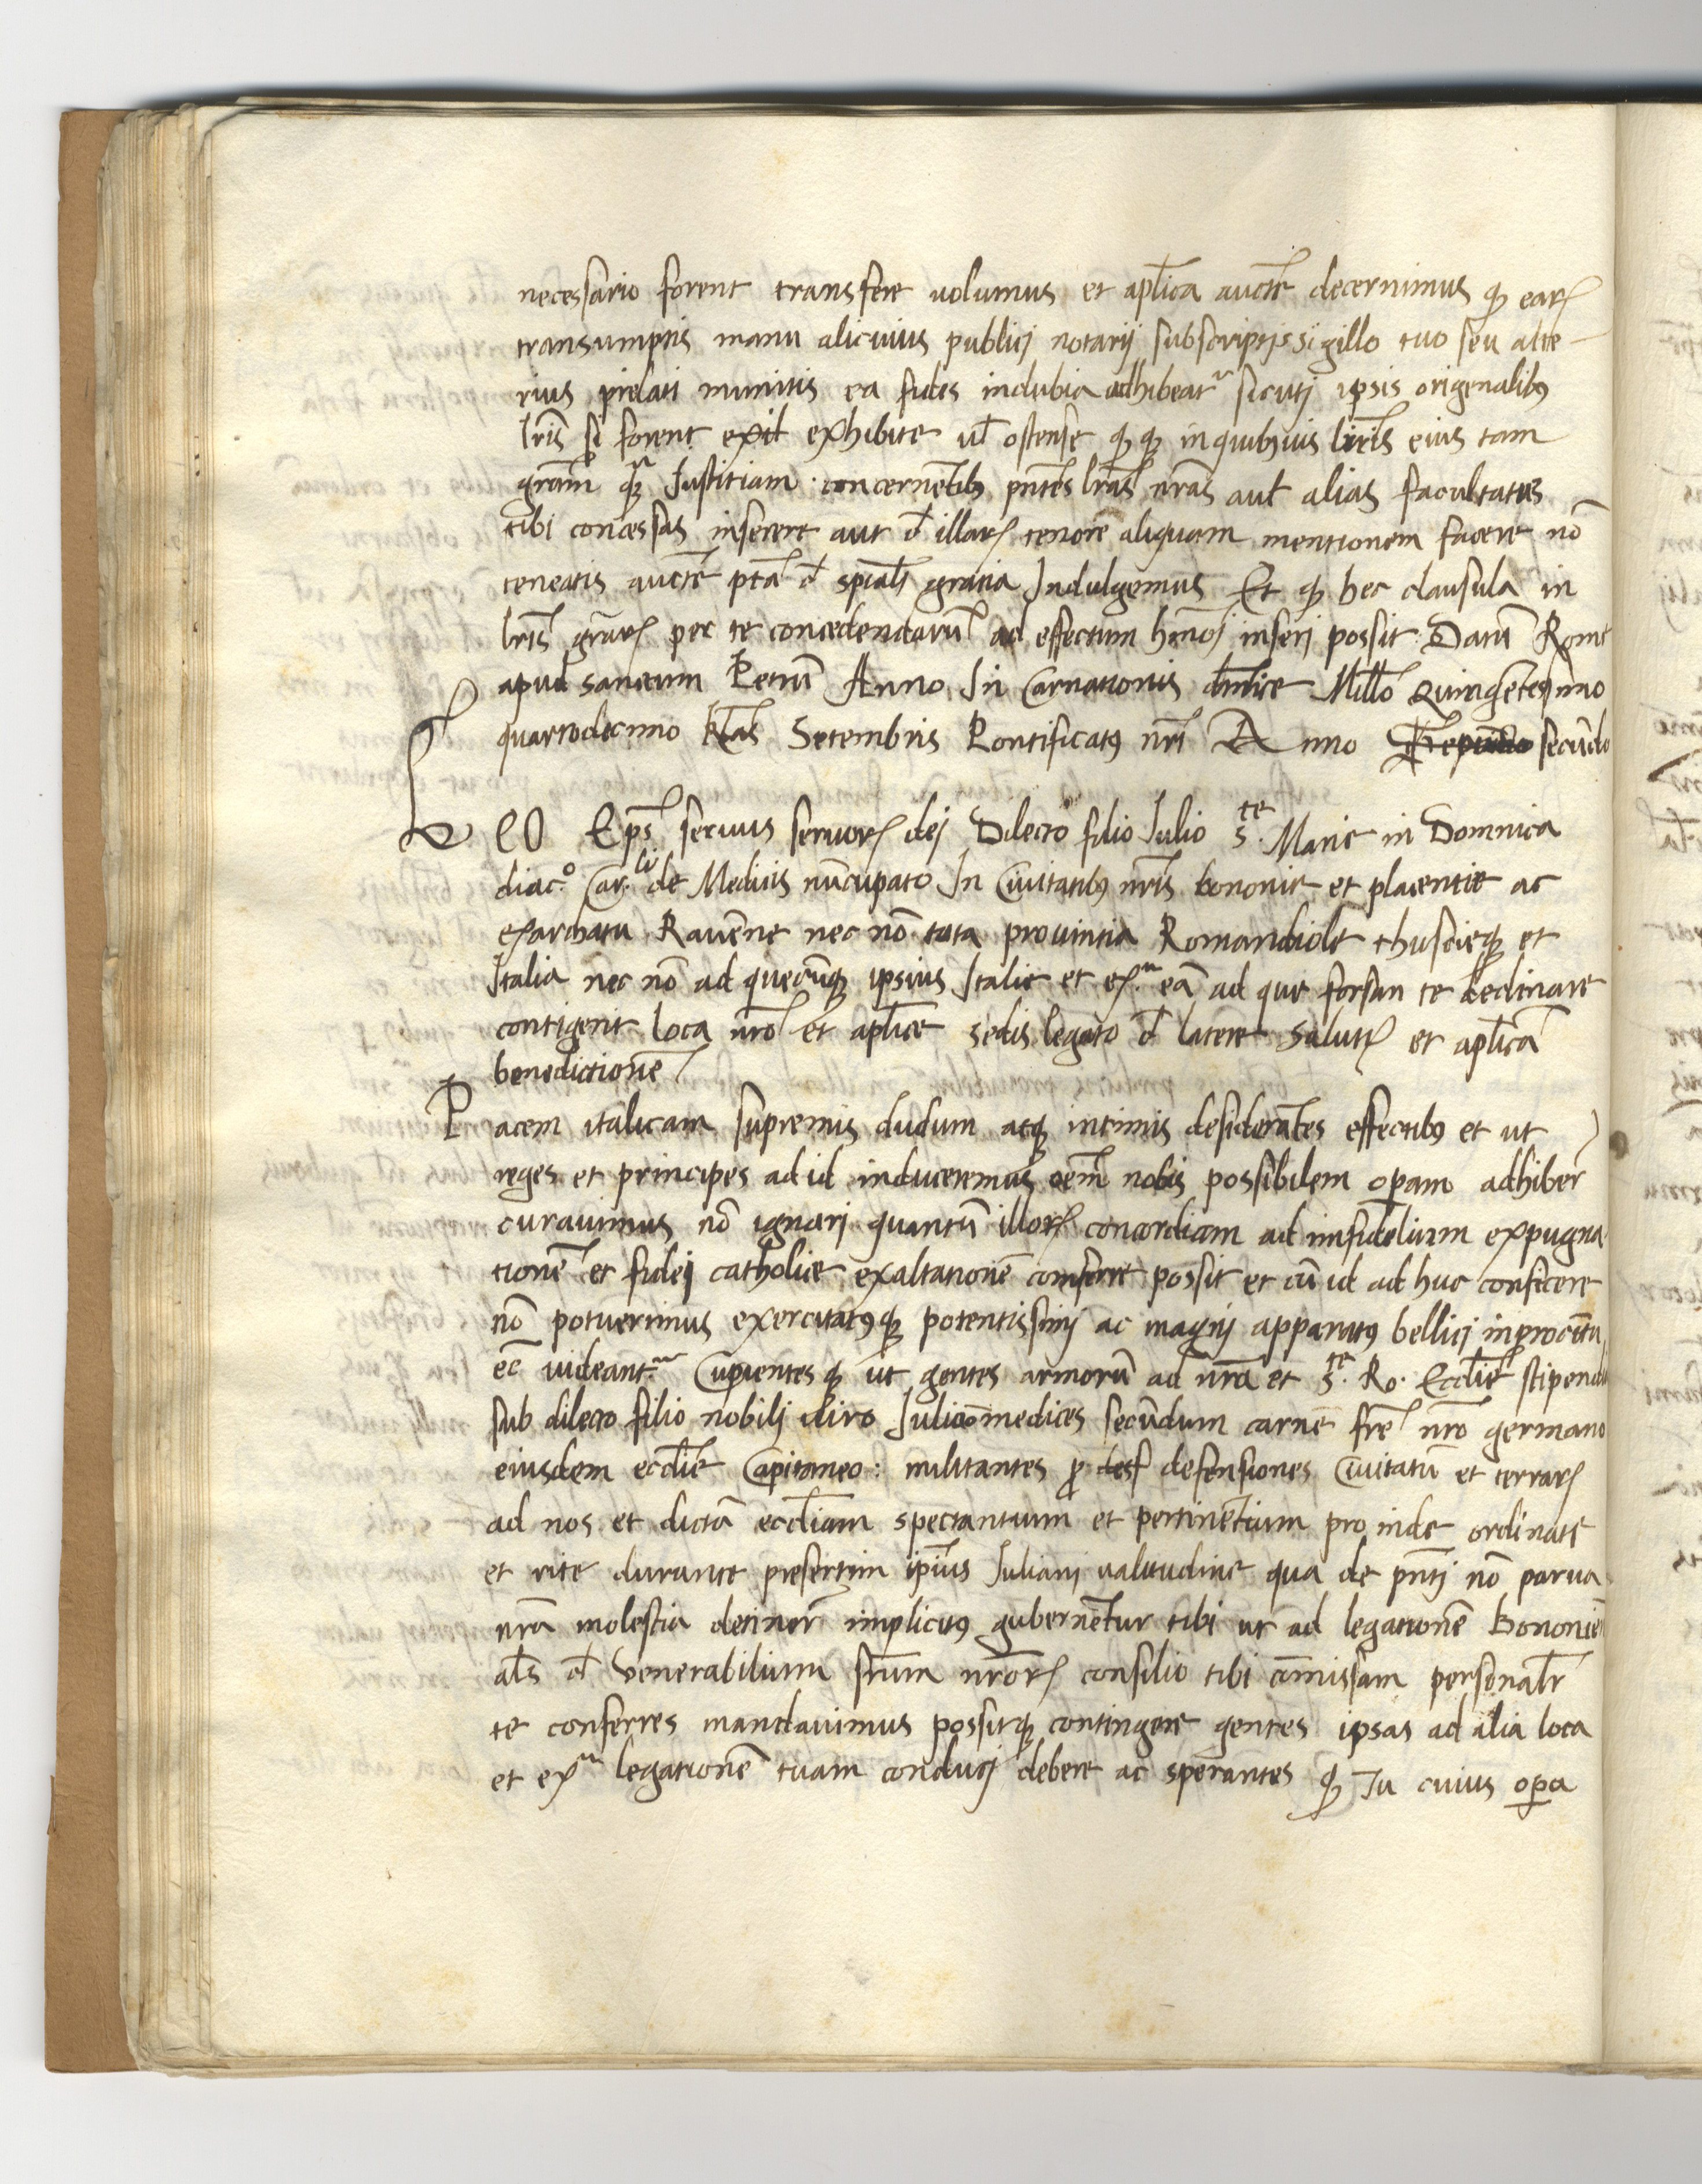 necessario forent transferre volumus et ap̄lica auctē decernimus q; earꝝ
transumptis manu alicuius publicj notarij subscriptis sigillo tuo seu alte-
rius prelati munitis ea fides indubia adhibeatr sicutj ipsis origenalibꝰ
lr̄is si forent exil exhibite ul̄ ostense q; q; in quibusuis litris eius tam
gram̄ q; Justitiam concernētibꝰ pn̄tes lr̄as nr̄as aut alias facultates
tibi concessas inserere aut d̄ illarꝝ tenore aliquam mentionem facere nō
teneatis auctē ptā d̄ spiali gratia Indulgemus Et q; hec clausula in
lr̄is grarꝝ per te concedendarū ad effectum hmōj inserj possit Datū Rome
apud sanctum Petrū Anno In Carnationis dn̄ice Mill̄o Quingētesimo
quartodecimo kl̄as Setembris Pontificatꝰ nr̄i Anno secūdo
LEO Ep̄s seruus seruorꝝ dej Dilecto filio Julio S.te Marie in Domnica
diac.o Car.li de Medicis nūcupato In Ciuitatibꝰ nr̄is bononie et placentie ac
exarchatu Rauēne nec nō tota prouintia Romandiole thuscieq; et
Italia nec nō ad quecūq; ipsius Italie et ex.a eā ad que forsan te declinare
contigerit loca nr̄o et ap̄lice sedis legato d̄ latere Salutꝝ et ap̄licā
benedictionē
Pacem italicam supremis dudum atq; intimis desiderātes effectibꝰ et ut
reges et principes ad id induceremus oem̄ nobis possibilem opam adhiber̄
curauimus nō ignari quantū illorꝝ concordiam ad infidelium expugna
tionē et fidej catholice exaltationē conferre possit et cū id ad huc conficere
nō potuerimus exercitatꝰq; potentissimj ac magnj apparatꝰ bellicj in procītu
eē uideant.r Cupientes q; ut gentes armorū ad nr̄a et S.te Ro. Eccl̄ie stipendi
sub dilecto filio nobilj uiro Julio medices secūdum carnē fr̄e nr̄o germano
eiusdem eccl̄ie Capitaneo: militantes p desf defensiones Ciuitatū et terrarꝝ
ad nos et dictā eccl̄iam spectantium et pertinētium pro inde ordinate
et rite durante presertim ip̄ius Juliani ualitudine qua de pn̄tj nō parua
nr̄a molestia detinetr̄ implicitꝰ gubernētur tibi ut ad legationē bononiēn
al̄s d̄ Venerabilium fr̄um nr̄orꝝ consilio tibi cōmissam personalr̄
te conferres mandauimus possitq; contingere gentes ipsas ad alia loca
et ex.a legationē tuam conducj debere ac sperantes q; Tu cuius opa